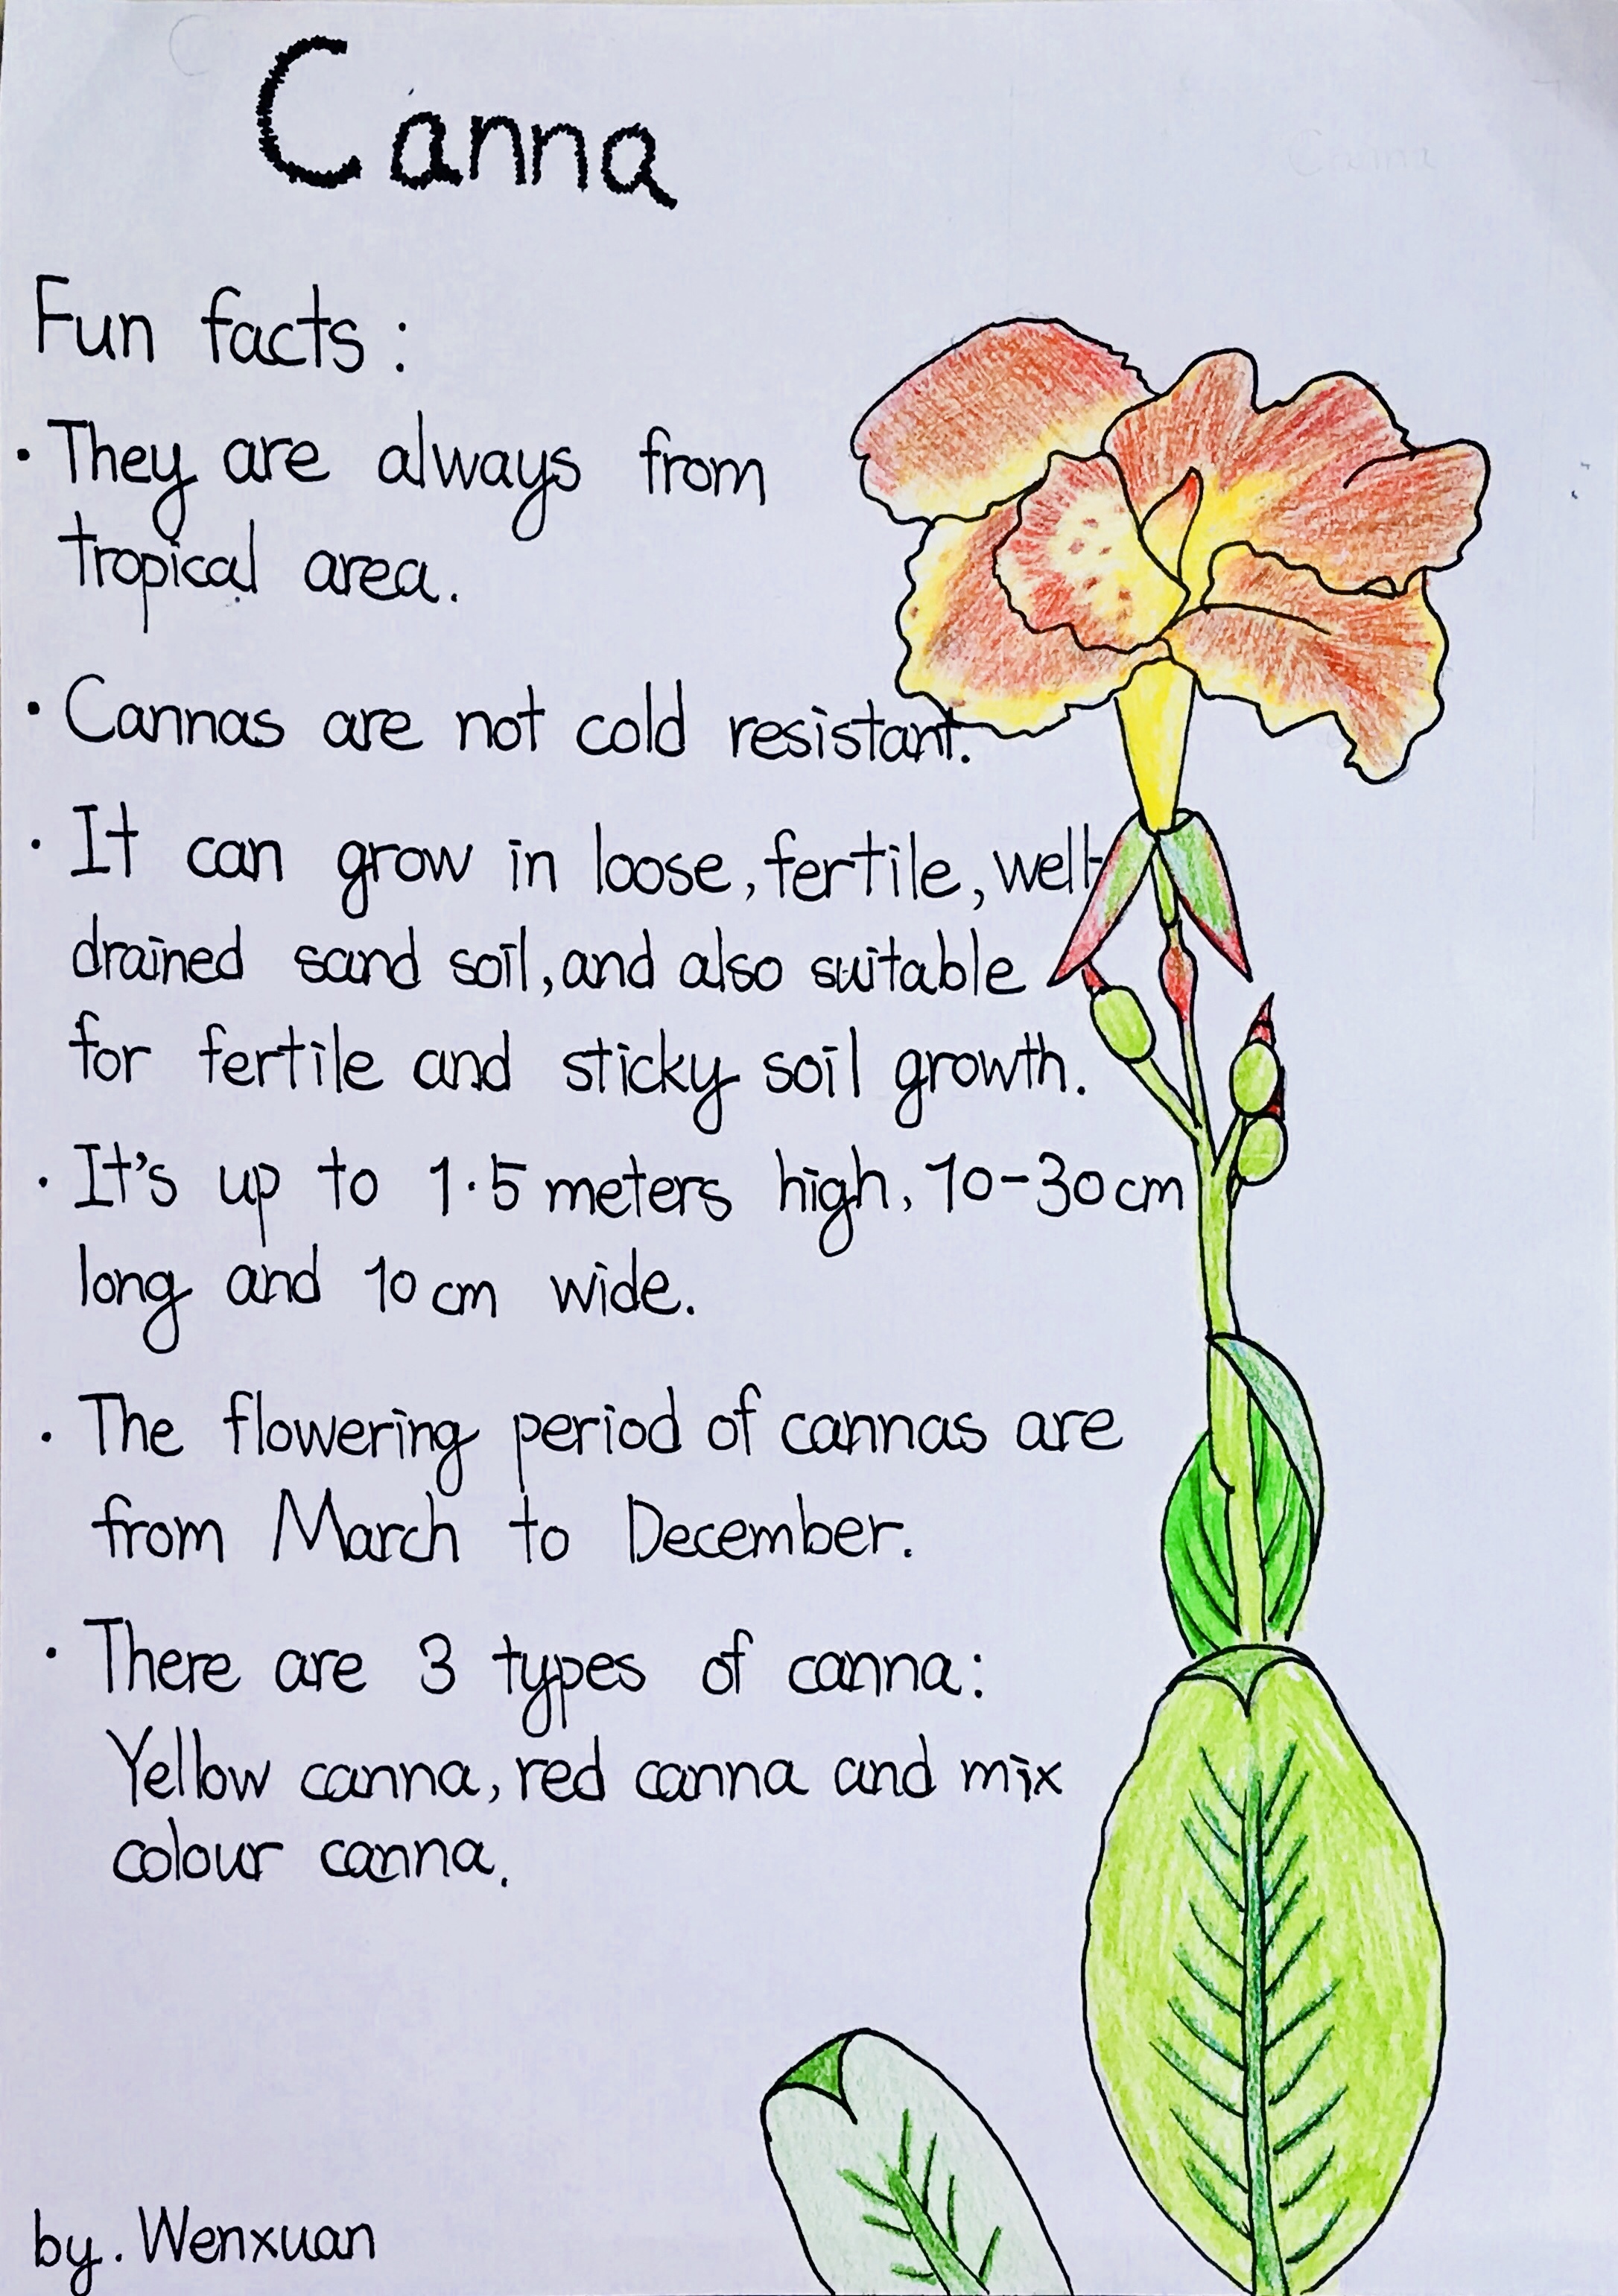 Canna
Fun facts:
· They are always from
tropical area.
· Cannas are not cold resistant.
· It can grow in loose, fertile, well-
drained sand soil, and also suitable
for fertile and sticky soil growth.
· It's up to 1.5 meters high, 10-30cm
long and 10cm wide.
· The flowering period of cannas are
from March to December.
· There are 3 types of canna:
Yellow canna, red canna and mix
colour canna.
by. Wenxuan